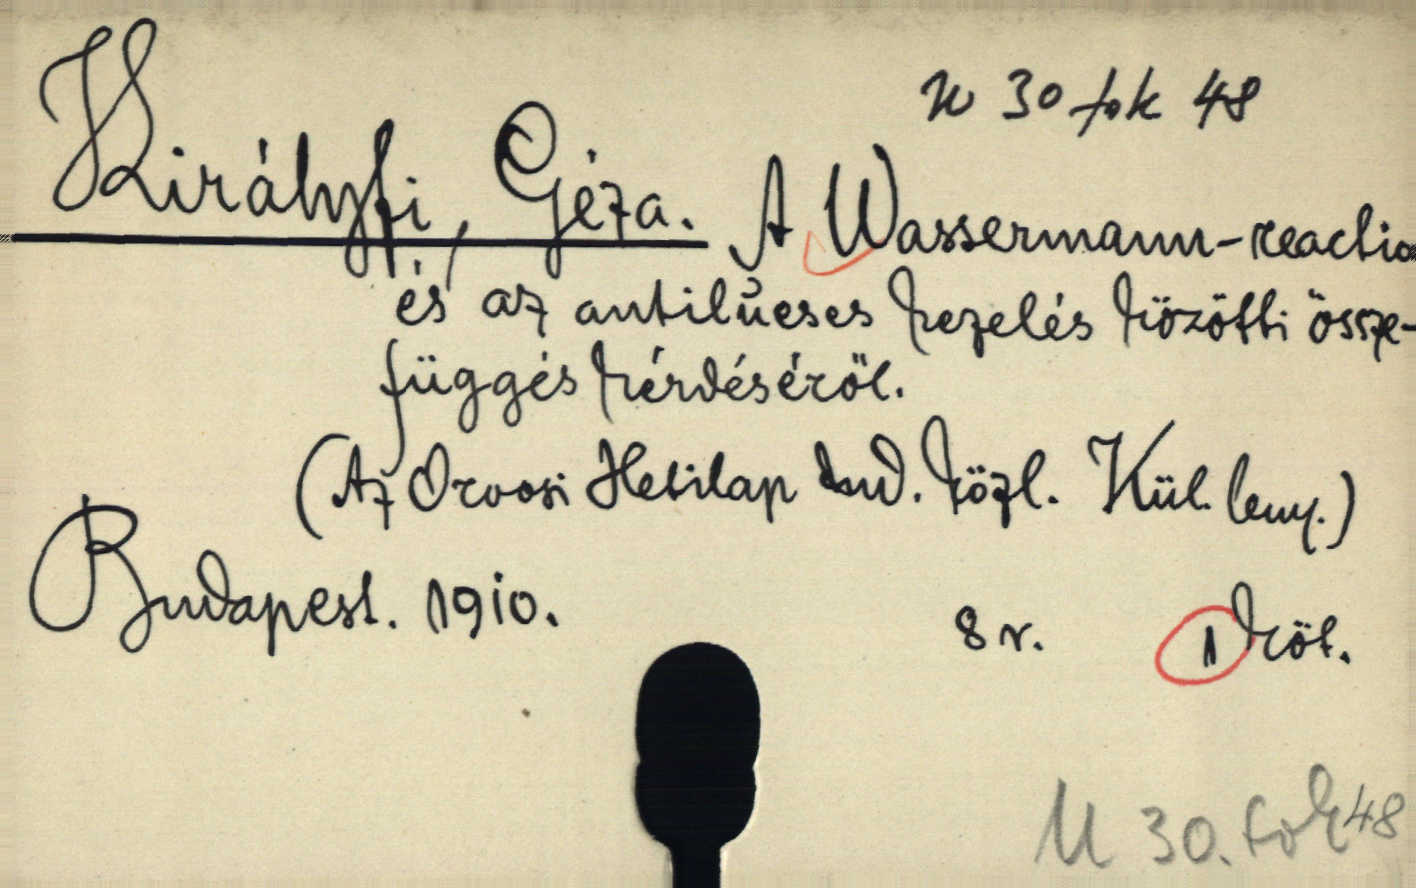 U 30 fok 48
Királyfi, Géza. A Wassermann-reactio
és az antilüeses kezelés közötti össze-
függés kérdéséről.
(Az Orvosi Hetilap tud. közl. Kül. leny.)
Budapest. 1910. 8 r. 1 köt.
U 30. fok 48